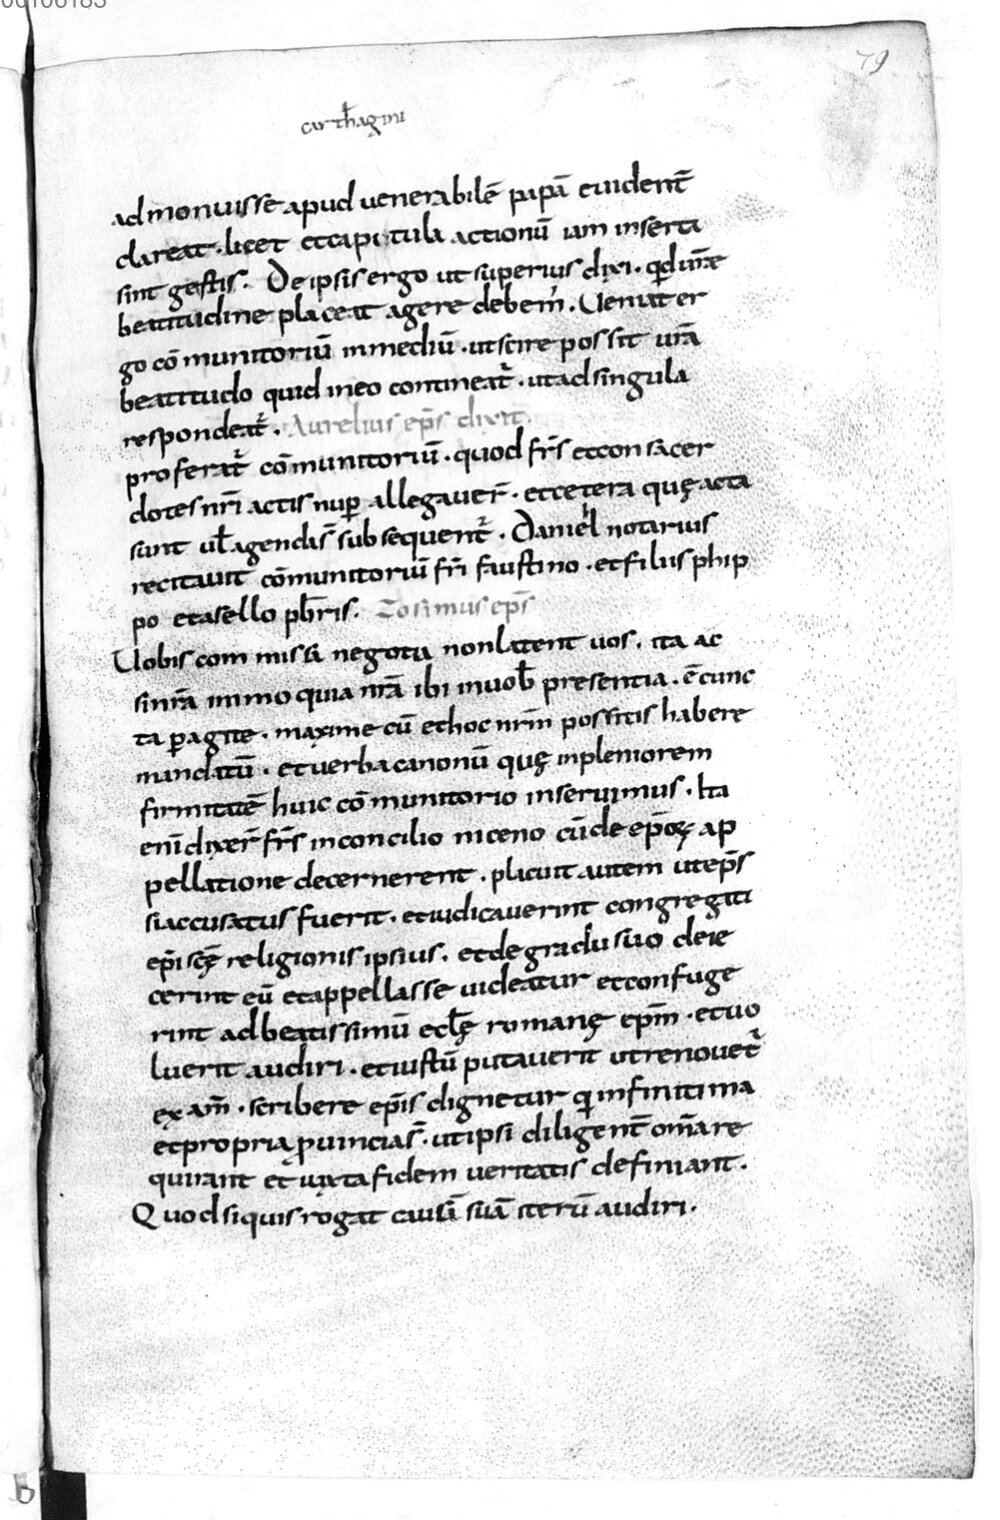 00106183
79
carthagini
admonuisse apud uenerabilē papā euident̄
clareat · licet et capitula actionū iam inserta
sint gestis. De ipsis ergo ut superius dixi · qd urāe
beatitudine placeat agere debem̄. Ueniat er
go cōmunitoriū inmediū · ut scire possit urā
beatitudo quid ineo contineat̄ · utad singula
respondeat̄. Aurelius ep̄s dixit.
proferat̄ cōmunitoriū · quod fr̄s etconsacer
dotes nr̄i actis nuꝑ allegauer̄ · etcetera quę acta
sunt ul̄ agendis subsequent̄ · Daniel notarius
recitauit cōmunitoriū fr̄i faustino · etfiliis phip
po etasello pb̄ris. Zosimus ep̄s
Uobis commissa negotia nonlatent uos. ita ac
sinrā immo quia nrā ibi inuob̄ presentia · ē cunc
ta ꝑagite · maxime cū ethoc nrm̄ possitis habere
mandatū · etuerba canonū quę inpleniorem
firmitatē huic cōmunitorio inseruimus · Ita
enī dixer̄ fr̄s inconcilio niceno cūde ep̄oꝝ ap
pellatione decernerent · placuit autem utep̄s
siaccusatus fuerit · etiudicauerint congregati
ep̄i religionis ipsius. etdegradu suo deie
cerint eū etappellasse uideatur etconfuge
rint adbeatissimū eccl̄ę romanę ep̄m · etuo
luerit audiri · etiustū putauerit utrenouet̄
exam̄ · scribere ep̄is dignetur q infinitima
etpropria ꝓuincia s̄ · utipsi diligent̄ om̄a re
quirant et iuxta fidem ueritatis definiant.
Quodsiquis rogat causā suā iterū audiri.